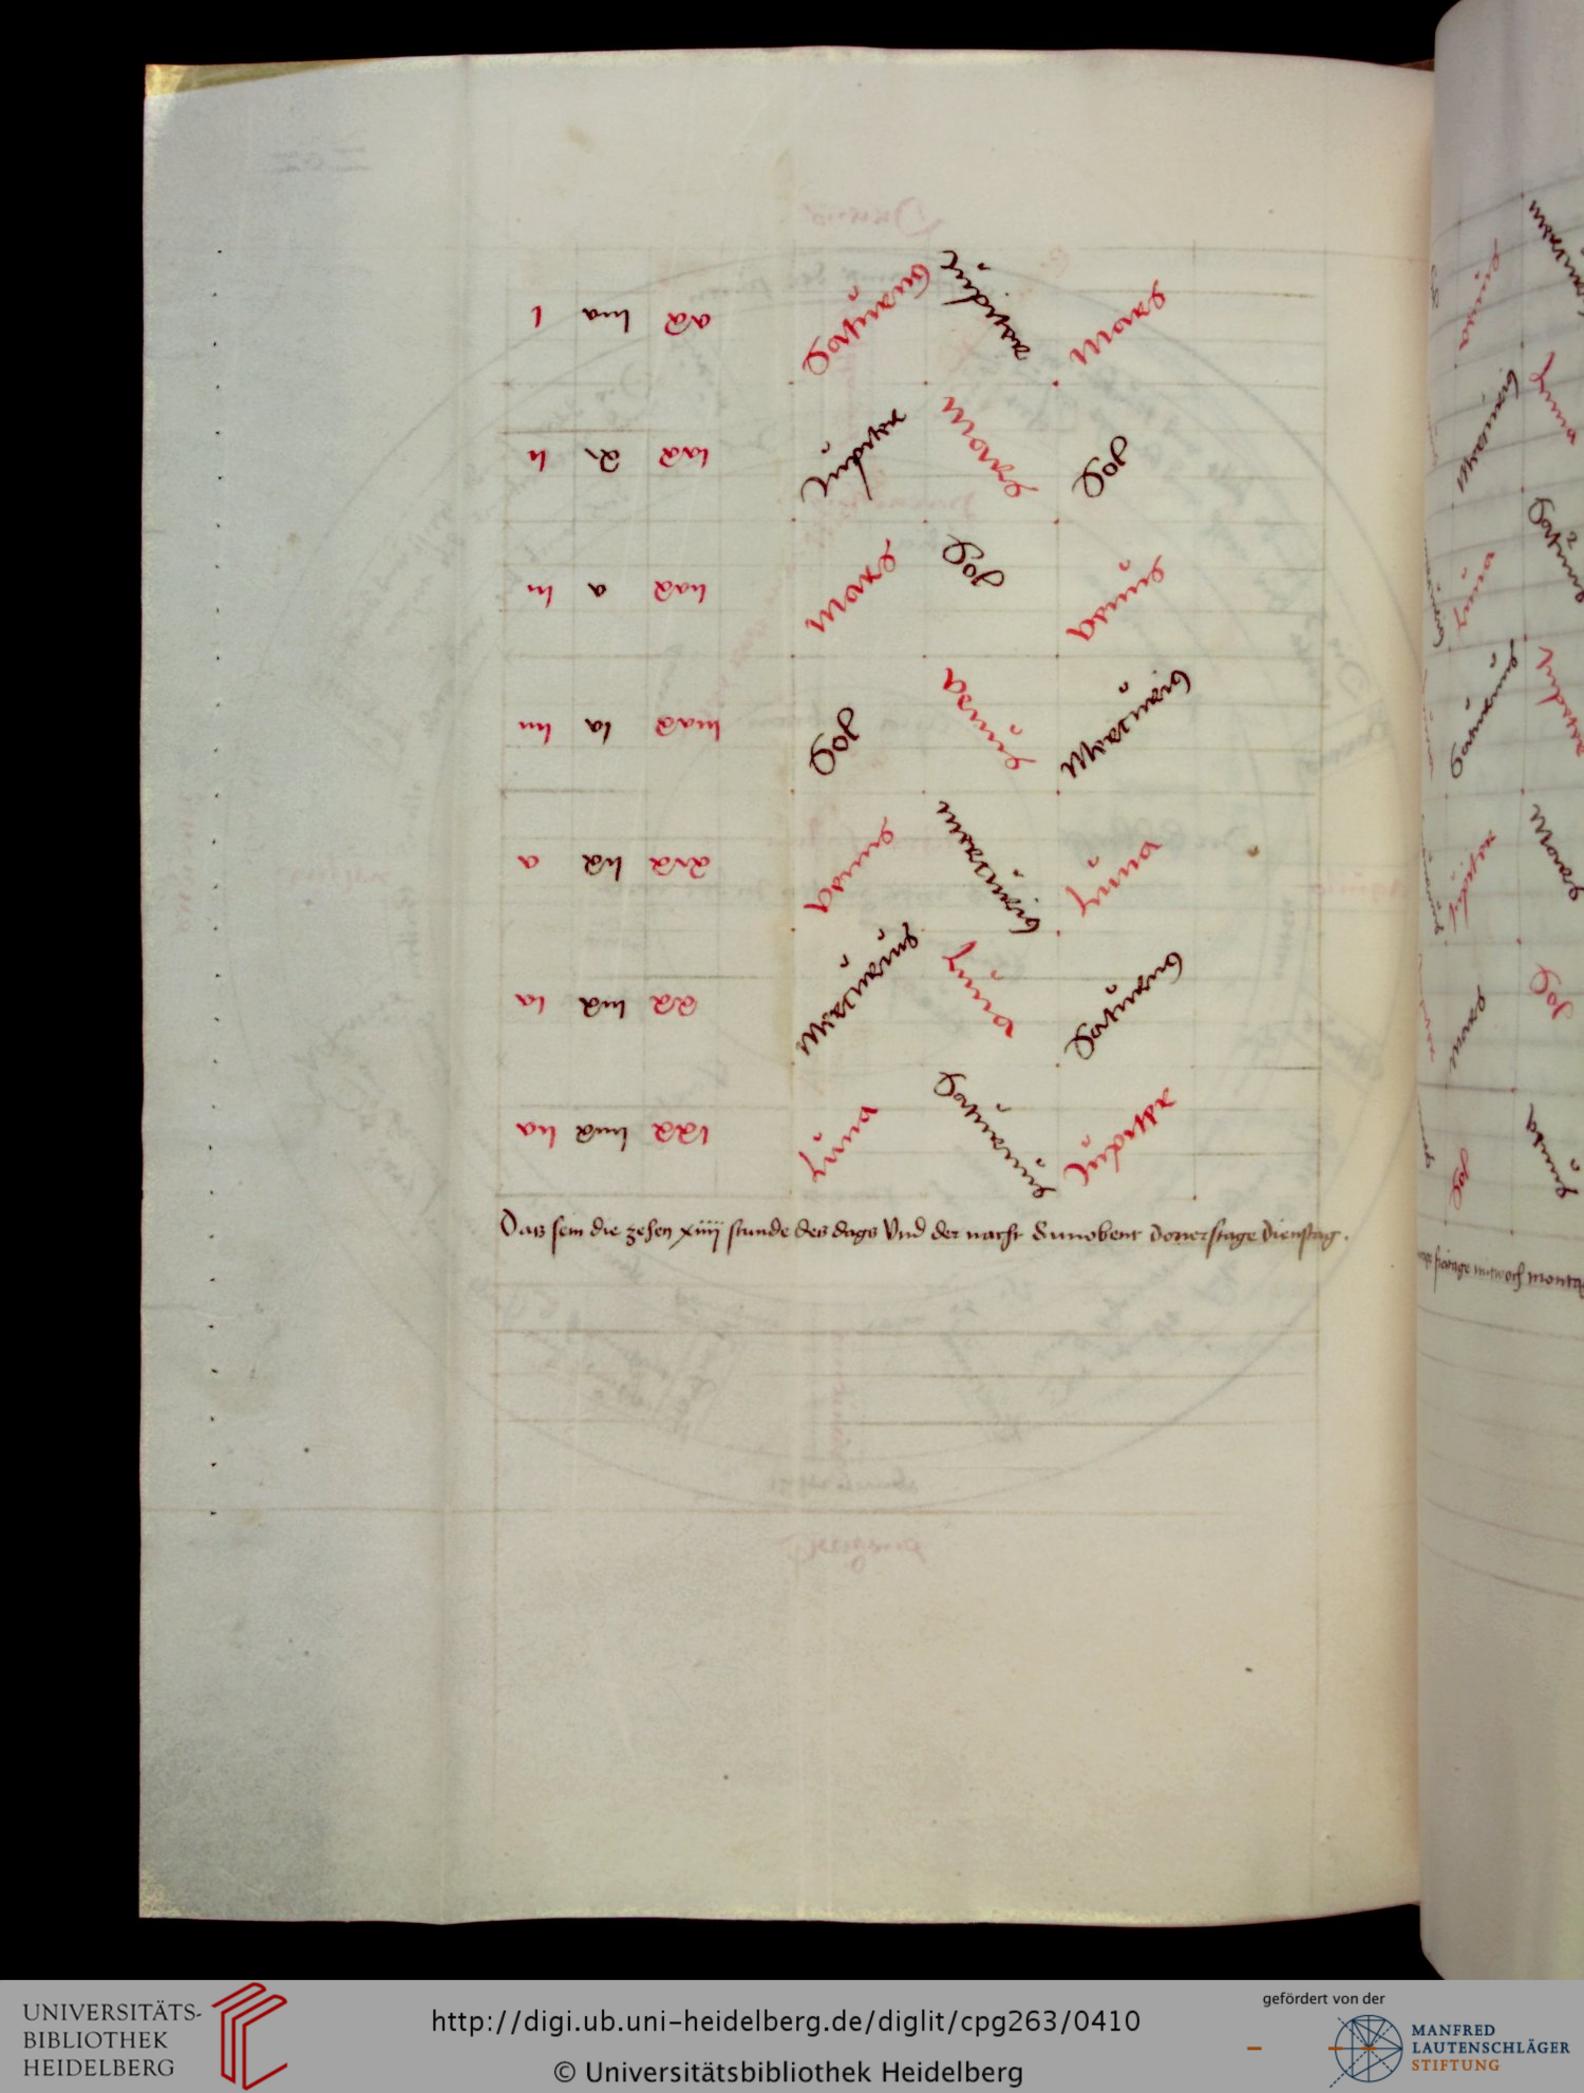 i viii xv Saturnus Jupiter Mars
ii ix xvi Jupiter Mars Sol
iii x xvii Mars Sol Venus
iiii xi xviii Sol Venus Mercurius
v xii xix Venus Mercurius Luna
vi xiii xx Mercurius Luna Saturnus
vii xiiii xxi Luna Saturnus Jupiter
Das sein die zehen xiiij stunde des dags Vnd der nacht Sunobent Donerstage Dienstag .
fritage mitwoch monta
UNIVERSITÄTS-
BIBLIOTHEK
HEIDELBERG
http://digi.ub.uni-heidelberg.de/diglit/cpg263/0410
© Universitätsbibliothek Heidelberg
gefördert von der
MANFRED
LAUTENSCHLÄGER
STIFTUNG